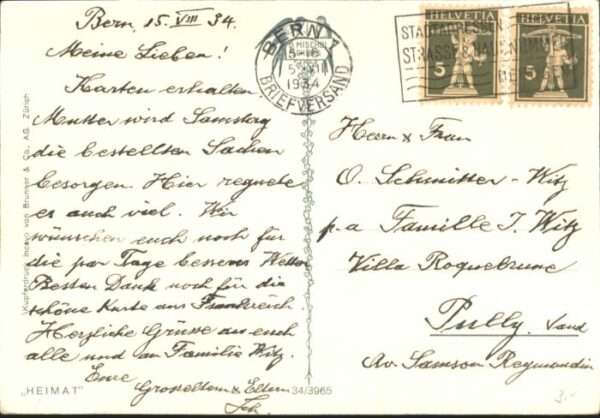 Bern, 15. VIII 34.
Meine Lieben!
Karten erhalten,
Mutter wird Samstag
die bestellten Sachen
besorgen. Hier regnete
es auch viel. Wir
wünschen euch noch für
die par Tage besseres Wetter
Besten Dank noch für die
schöne Karte aus Frankreich.
Herzliche Grüsse an euch
alle und an Familie Witz.
Eure
Grosseltern & Eltern
BERN 1
1934
BRIEFVERSAND
STADTADRESSEN
STRASSE & HAUSNUMMER
HELVETIA
5
HELVETIA
5
Herrn & Frau
O. Schmitter-Witz
p.a Famille J. Witz
Villa Roquebrune
Pully. Vaud
Av. Samson Reymondin
Kupferdruck Brunner & Co. AG. Zürich
„HEIMAT"
34/3965